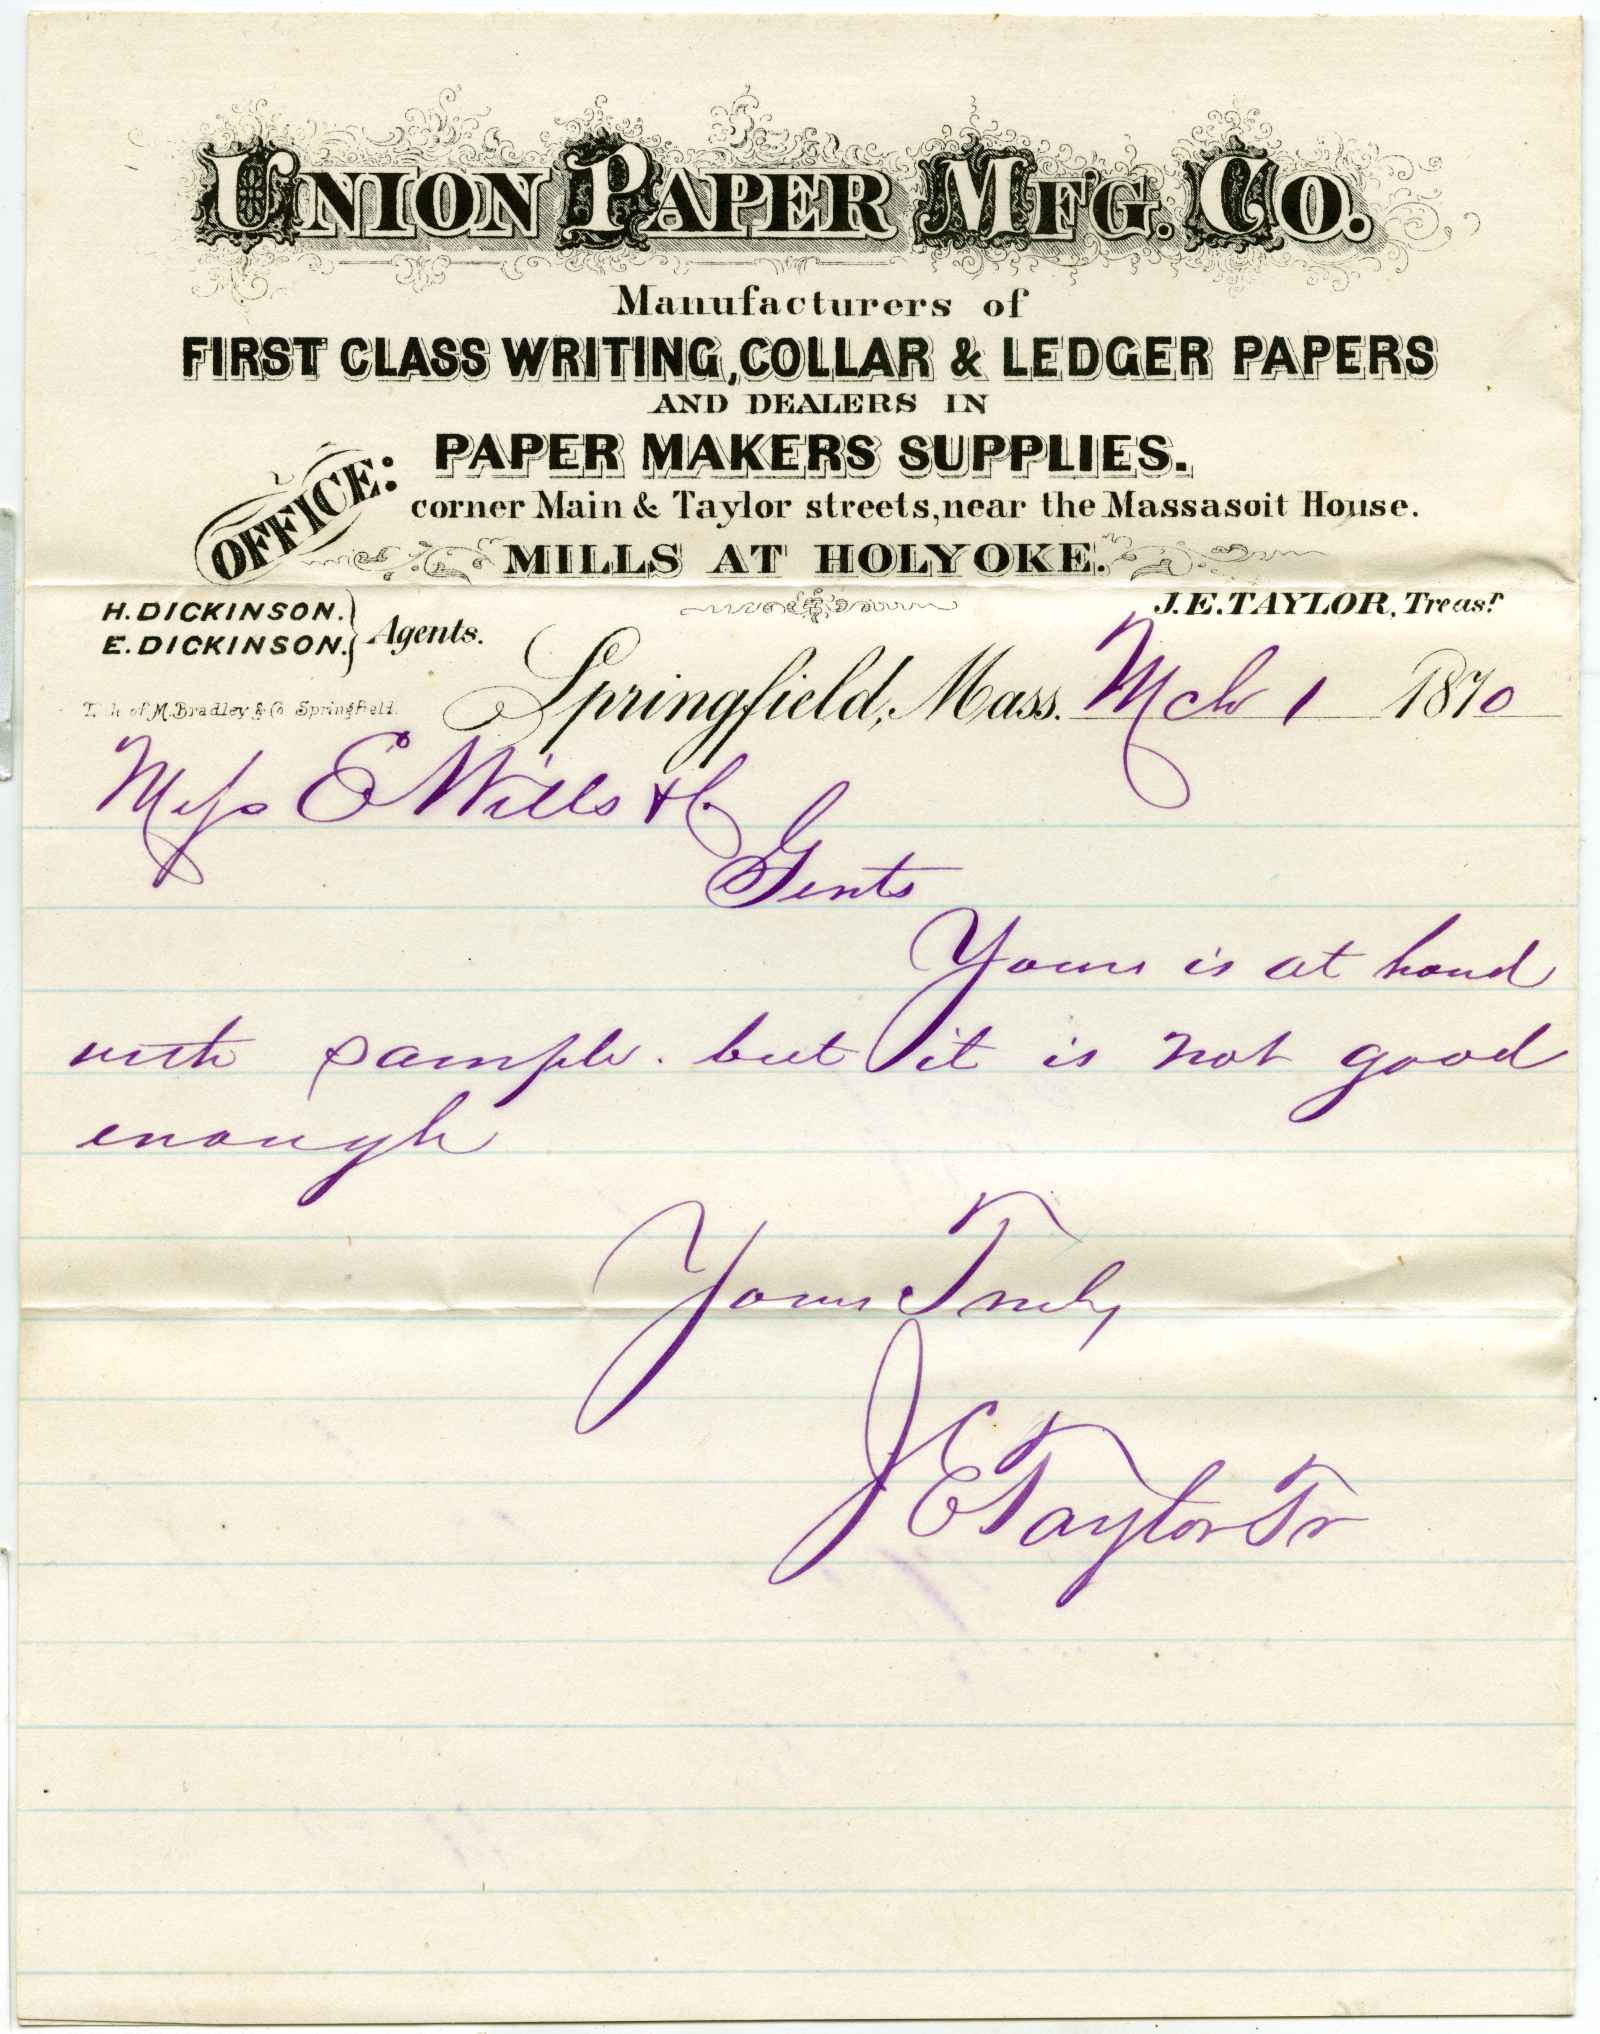 UNION PAPER MFG. CO.
Manufacturers of
FIRST CLASS WRITING, COLLAR & LEDGER PAPERS
AND DEALERS IN
PAPER MAKERS SUPPLIES.
OFFICE: corner Main & Taylor streets, near the Massasoit House.
MILLS AT HOLYOKE.
H. DICKINSON.
E. DICKINSON. } Agents.
J. E. TAYLOR, Treasr
of M. Bradley & Co Springfield.
Springfield, Mass. Mch 1 1870
Mess E Wills & Co
Gents
Yours is at hand
with sample. but it is not good
enough
Yours Truly
J E Taylor Tr